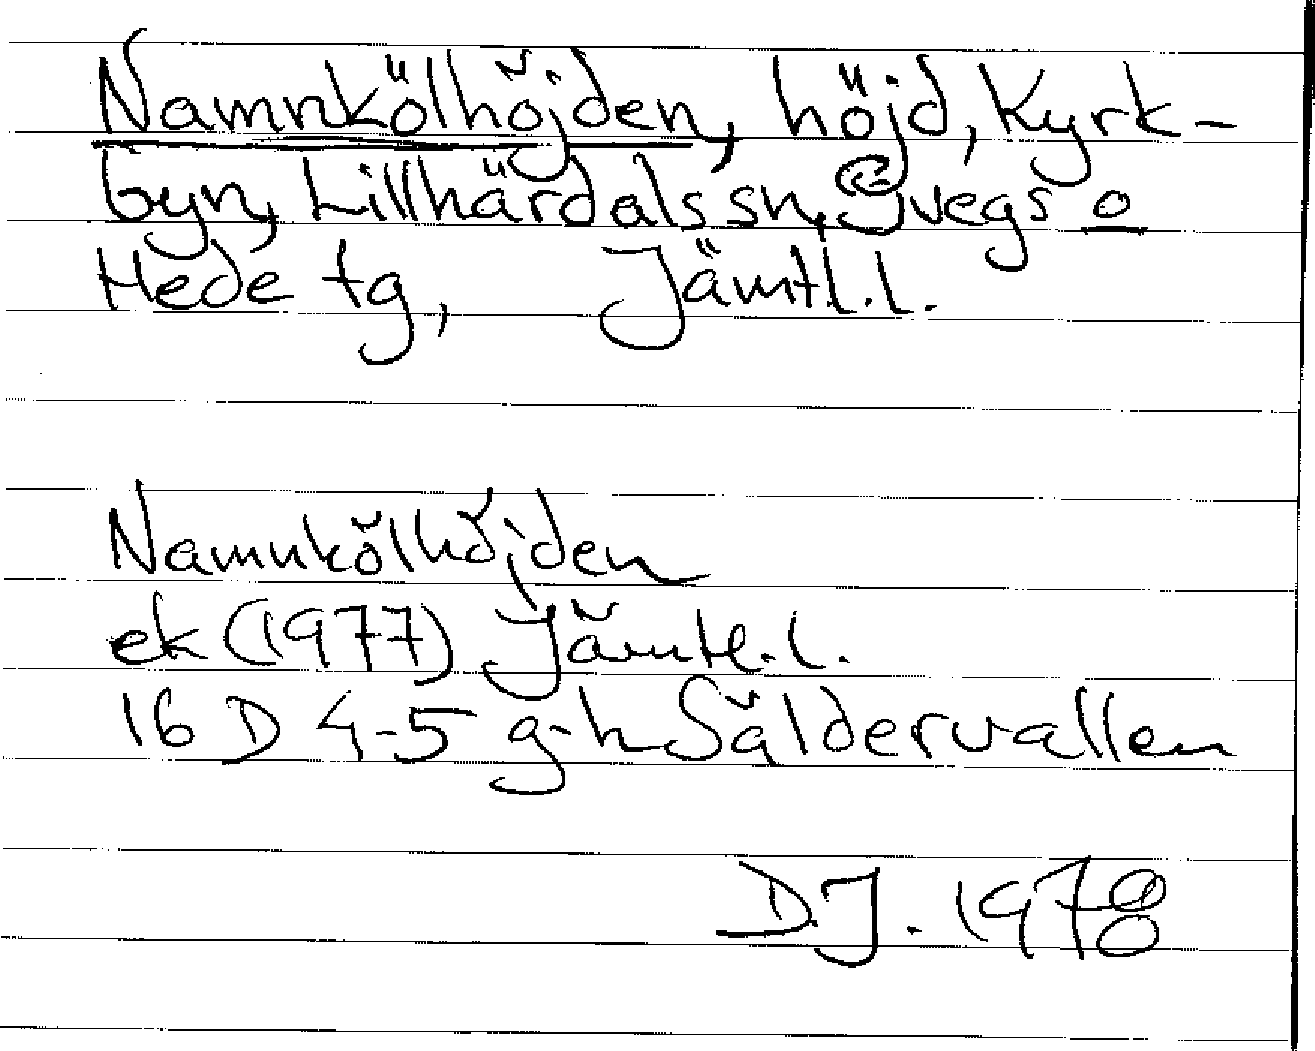 Namnkölhöjden, höjd, Kyrk-
byn, Lillhärdals sn, Svegs o
Hede tg, Jämtl. l.
Namnkölhöjden
ek (1977) Jämtl. l.
16 D 4-5 g-h Säldervallen
DJ. 1978